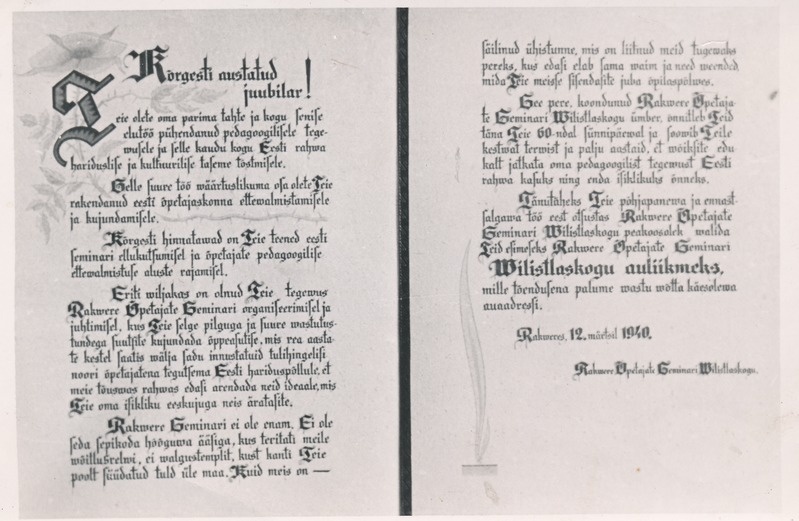 Kõrgesti austatud
juubilar!
Teie olete oma parima tahte ja kogu senise
elutöö pühendanud pedagoogilisele tege-
wusele ja selle kaudu kogu Eesti rahwa
hariduslise ja kultuurilise taseme tõstmisele.
Selle suure töö wäärtuslikuma osa olete Teie
rakendanud eesti õpetajaskonna ettewalmistamisele
ja kujundamisele.
Kõrgesti hinnatawad on Teie teened eesti
seminari ellukutsumisel ja õpetajate pedagoogilise
ettewalmistuse aluste rajamisel.
Eriti wiljakas on olnud Teie tegewus
Rakwere Õpetajate Seminari organiseerimisel ja
juhtimisel, kus Teie selge pilguga ja suure wastutus-
tundega suutsite kujundada õppeasutise, mis rea aasta-
te kestel saatis wälja sadu innustatuid tulihingelisi
noori õpetajatena tegutsema Eesti hariduspõllule, et
meie tõuswas rahwas edasi arendada neid ideaale, mis
Teie oma isikliku eeskujuga neis äratasite.
Rakwere Seminari ei ole enam. Ei ole
seda sepikoda hõõguwa ääsiga, kus teritati meile
wõitlusrelwi, ei walgustemplit, kust kanti Teie
poolt süüdatud tuld üle maa. Kuid meis on —
säilinud ühistunne, mis on liitnud meid tugewaks
pereks, kus edasi elab sama waim ja need weended,
mida Teie meisse sisendasite juba õpilaspõlwes.
See pere, koondunud Rakwere Õpetaja-
te Seminari Wilistlaskogu ümber, õnnitleb Teid
täna Teie 60-ndal sünnipäewal ja soowib Teile
kestwat terwist ja palju aastaid, et wõiksite edu
kalt jätkata oma pedagoogilist tegewust Eesti
rahwa kasuks ning enda isiklikuks õnneks.
Tänutäheks Teie põhjapanewa ja ennast-
salgawa töö eest otsustas Rakwere Õpetajate
Seminari Wilistlaskogu peakoosolek walida
Teid esimeseks Rakwere Õpetajate Seminari
Wilistlaskogu auliikmeks,
mille tõendusena palume wastu wõtta käesolewa
auaadressi.
Rakweres, 12. märtsil 1940.
Rakwere Õpetajate Seminari Wilistlaskogu.